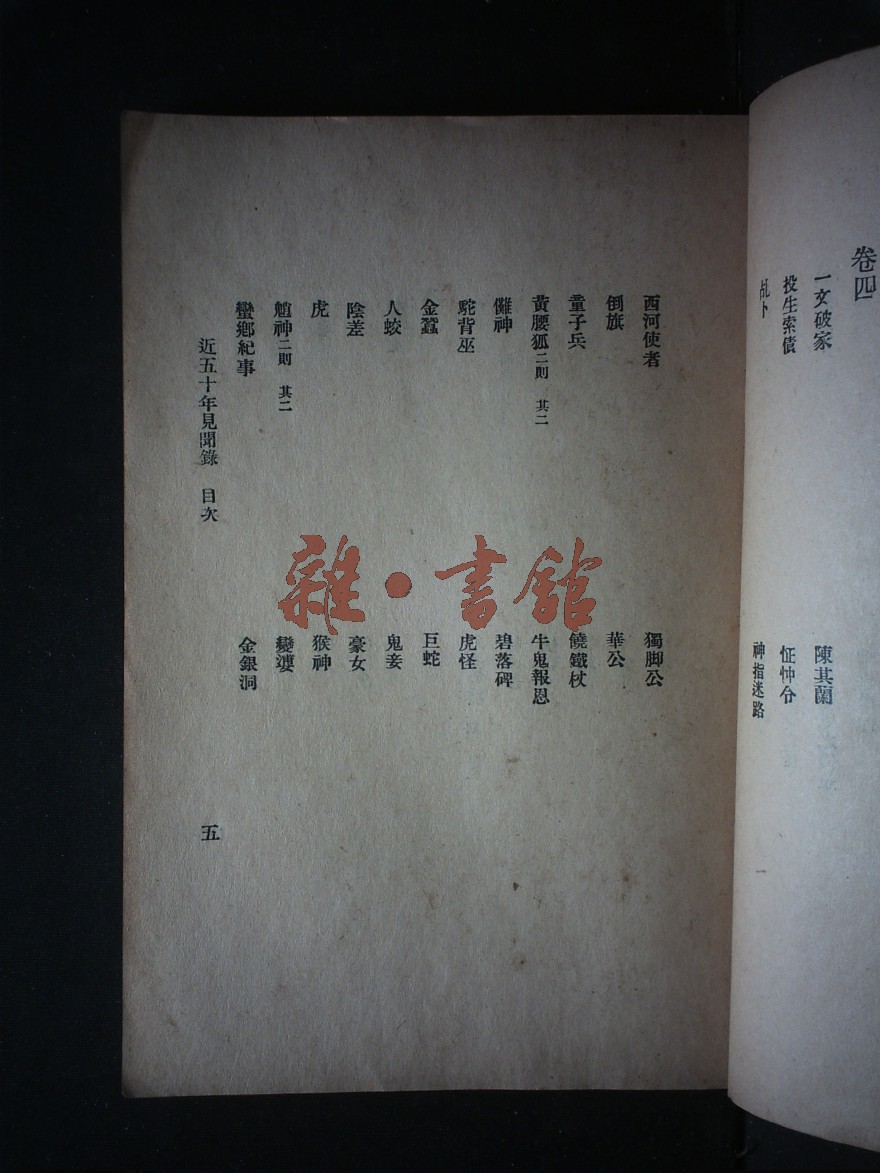 卷四
一文破家
陳其蘭
投生索債
怔忡令
乩卜
神指迷路
西河使者
獨脚公
倒旗
華公
童子兵
饒鐵杖
黃腰狐二則 其二
牛鬼報恩
儺神
碧落碑
駝背巫
虎怪
金蠶
巨蛇
人蛟
鬼妾
陰差
豪女
虎
猴神
魈神二則 其二
變婆
蠻鄉紀事
金銀洞
近五十年見聞錄 目次
五
雜·書館